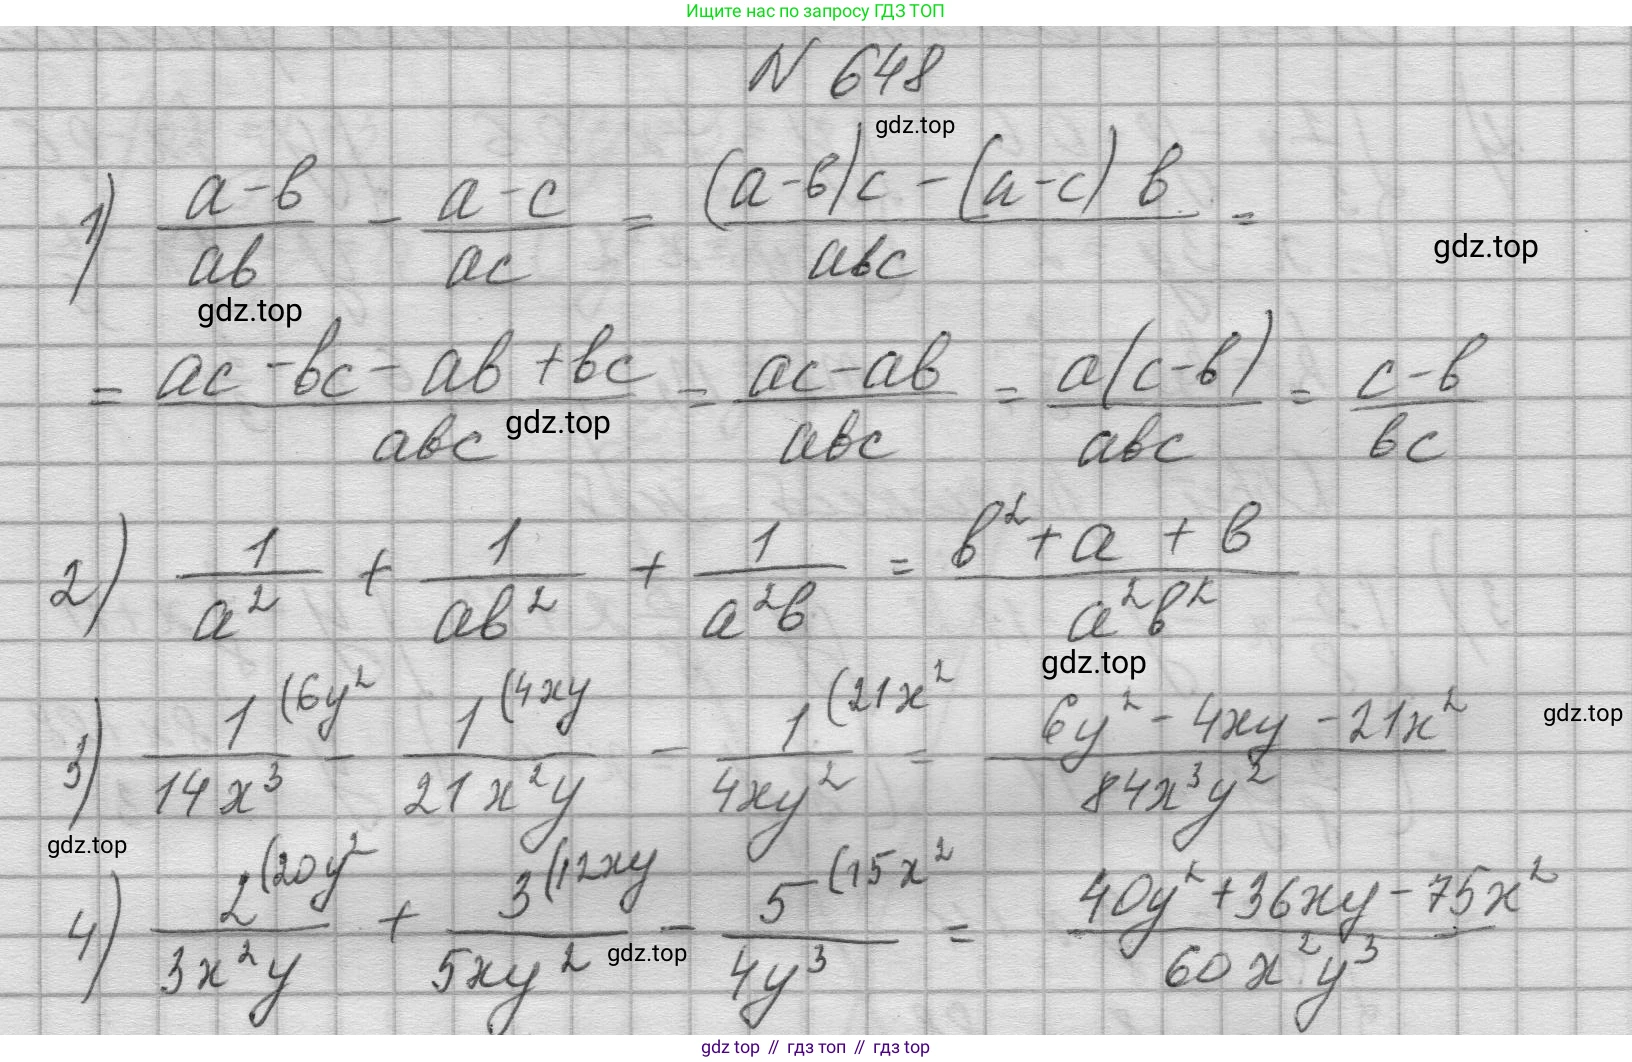 Ищите нас по запросу ГДЗ ТОП
N 648
gdz.top
1) (a-b)/(ab) - (a-c)/(ac) = ((a-b)c - (a-c)b)/(abc) =
gdz.top
gdz.top
= (ac-bc-ab+bc)/(abc) = (ac-ab)/(abc) = (a(c-b))/(abc) = (c-b)/(bc)
gdz.top
2) 1/a² + 1/(ab²) + 1/(a²b) = (b²+a+b)/(a²b²)
gdz.top
3) 1(6y²/(14x³) - 1(4xy/(21x²y) - 1(21x²/(4xy²) = (6y²-4xy-21x²)/(84x³y²)
gdz.top
gdz.top
4) 2(20y²/(3x²y) + 3(12xy/(5xy²) - 5(15x²/(4y³) = (40y²+36xy-75x²)/(60x²y³)
gdz.top
gdz top // гдз топ // гдз top